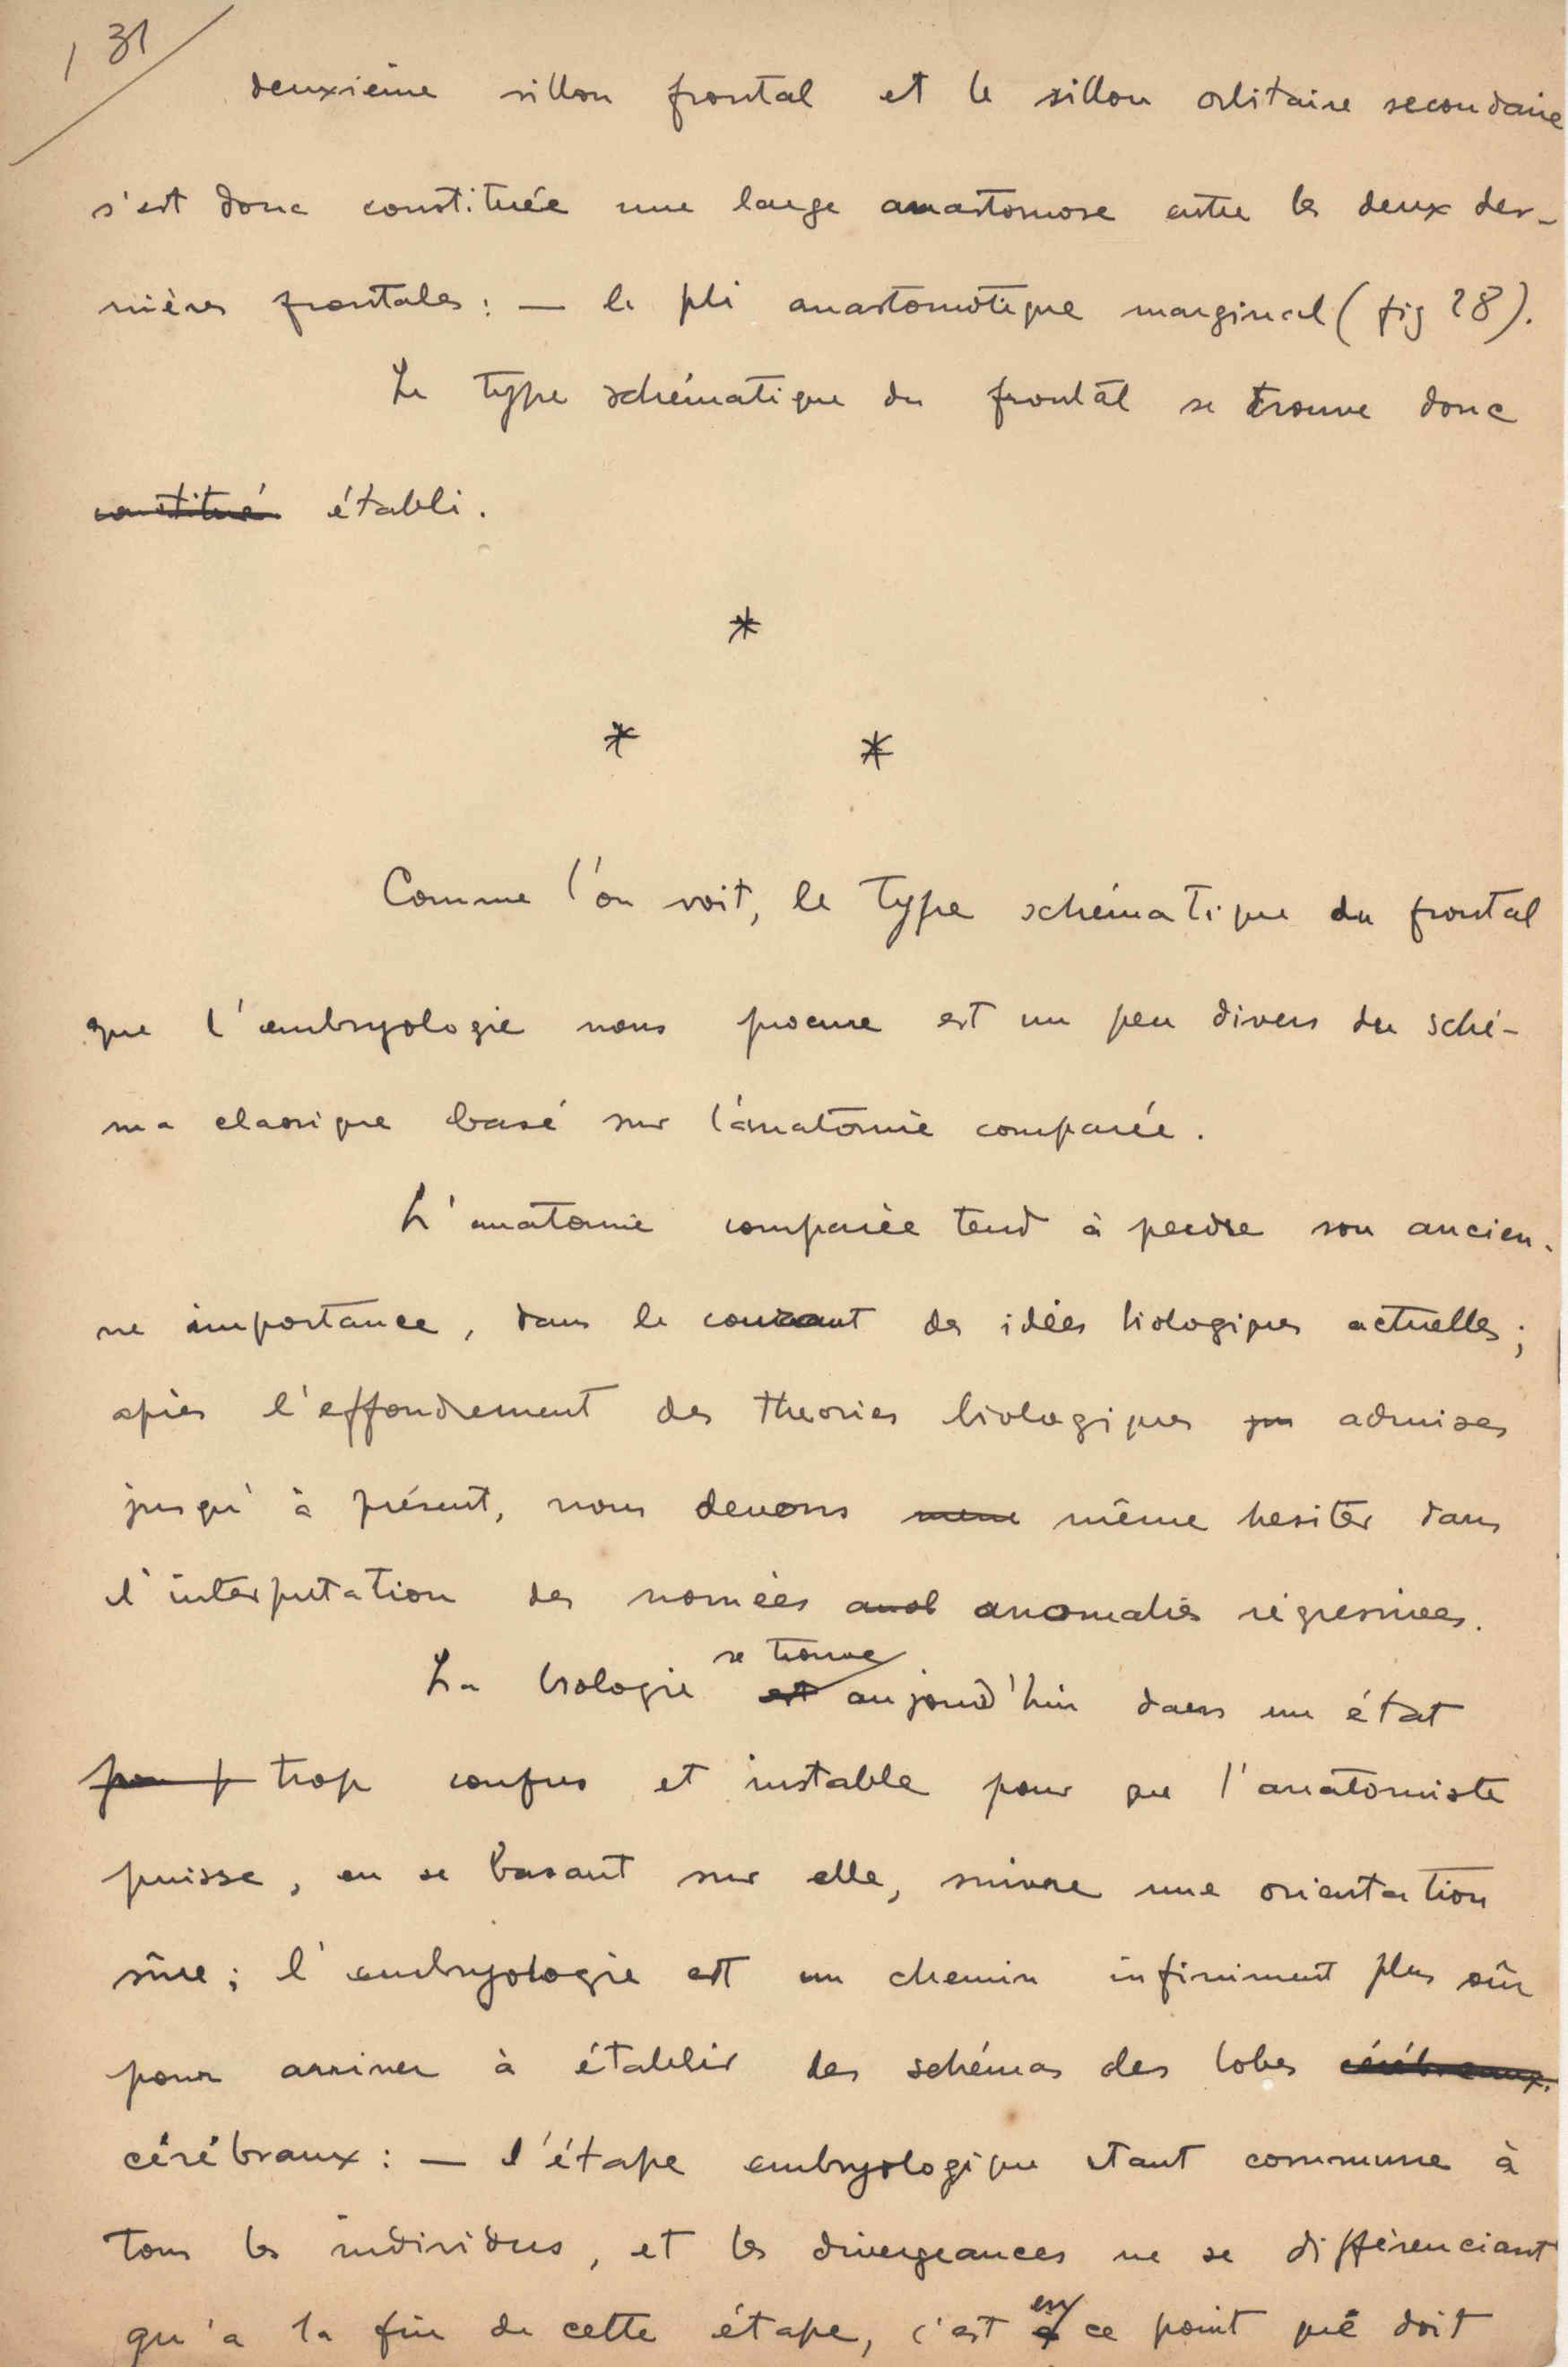 31
deuxième sillon frontal et le sillon orbitaire secondaire
s'est donc constituée une large anastomose entre les deux der-
nières frontales : — le pli anastomotique marginal ( fig 28 ).
Le type schématique du frontal se trouve donc
constitué établi.
*
* *
Comme l'on voit, le type schématique du frontal
que l'embryologie nous procure est un peu divers du sché-
ma classique basé sur l'anatomie comparée.
L'anatomie comparée tend à perdre son ancien-
ne importance, dans le courant des idées biologiques actuelles ;
après l'effondrement des theories biologiques jus admises
jusqu'à présent, nous devons meme même hesiter dans
l'interpretation des nomées anol anomalies régressives.
se trouve
La biologie est aujourd'hui dans un état
trop confus et instable pour que l'anatomiste
puisse, en se basant sur elle, suivre une orientation
sûre ; l'embryologie est un chemin infiniment plus sûr
pour arriver à établir des schémas des lobes cérébreaux.
cérébraux : — l'étape embryologique étant commune à
tous les individus, et les divergeances ne se différenciant
en
qu'a la fin de cette étape, c'est à ce point que doit